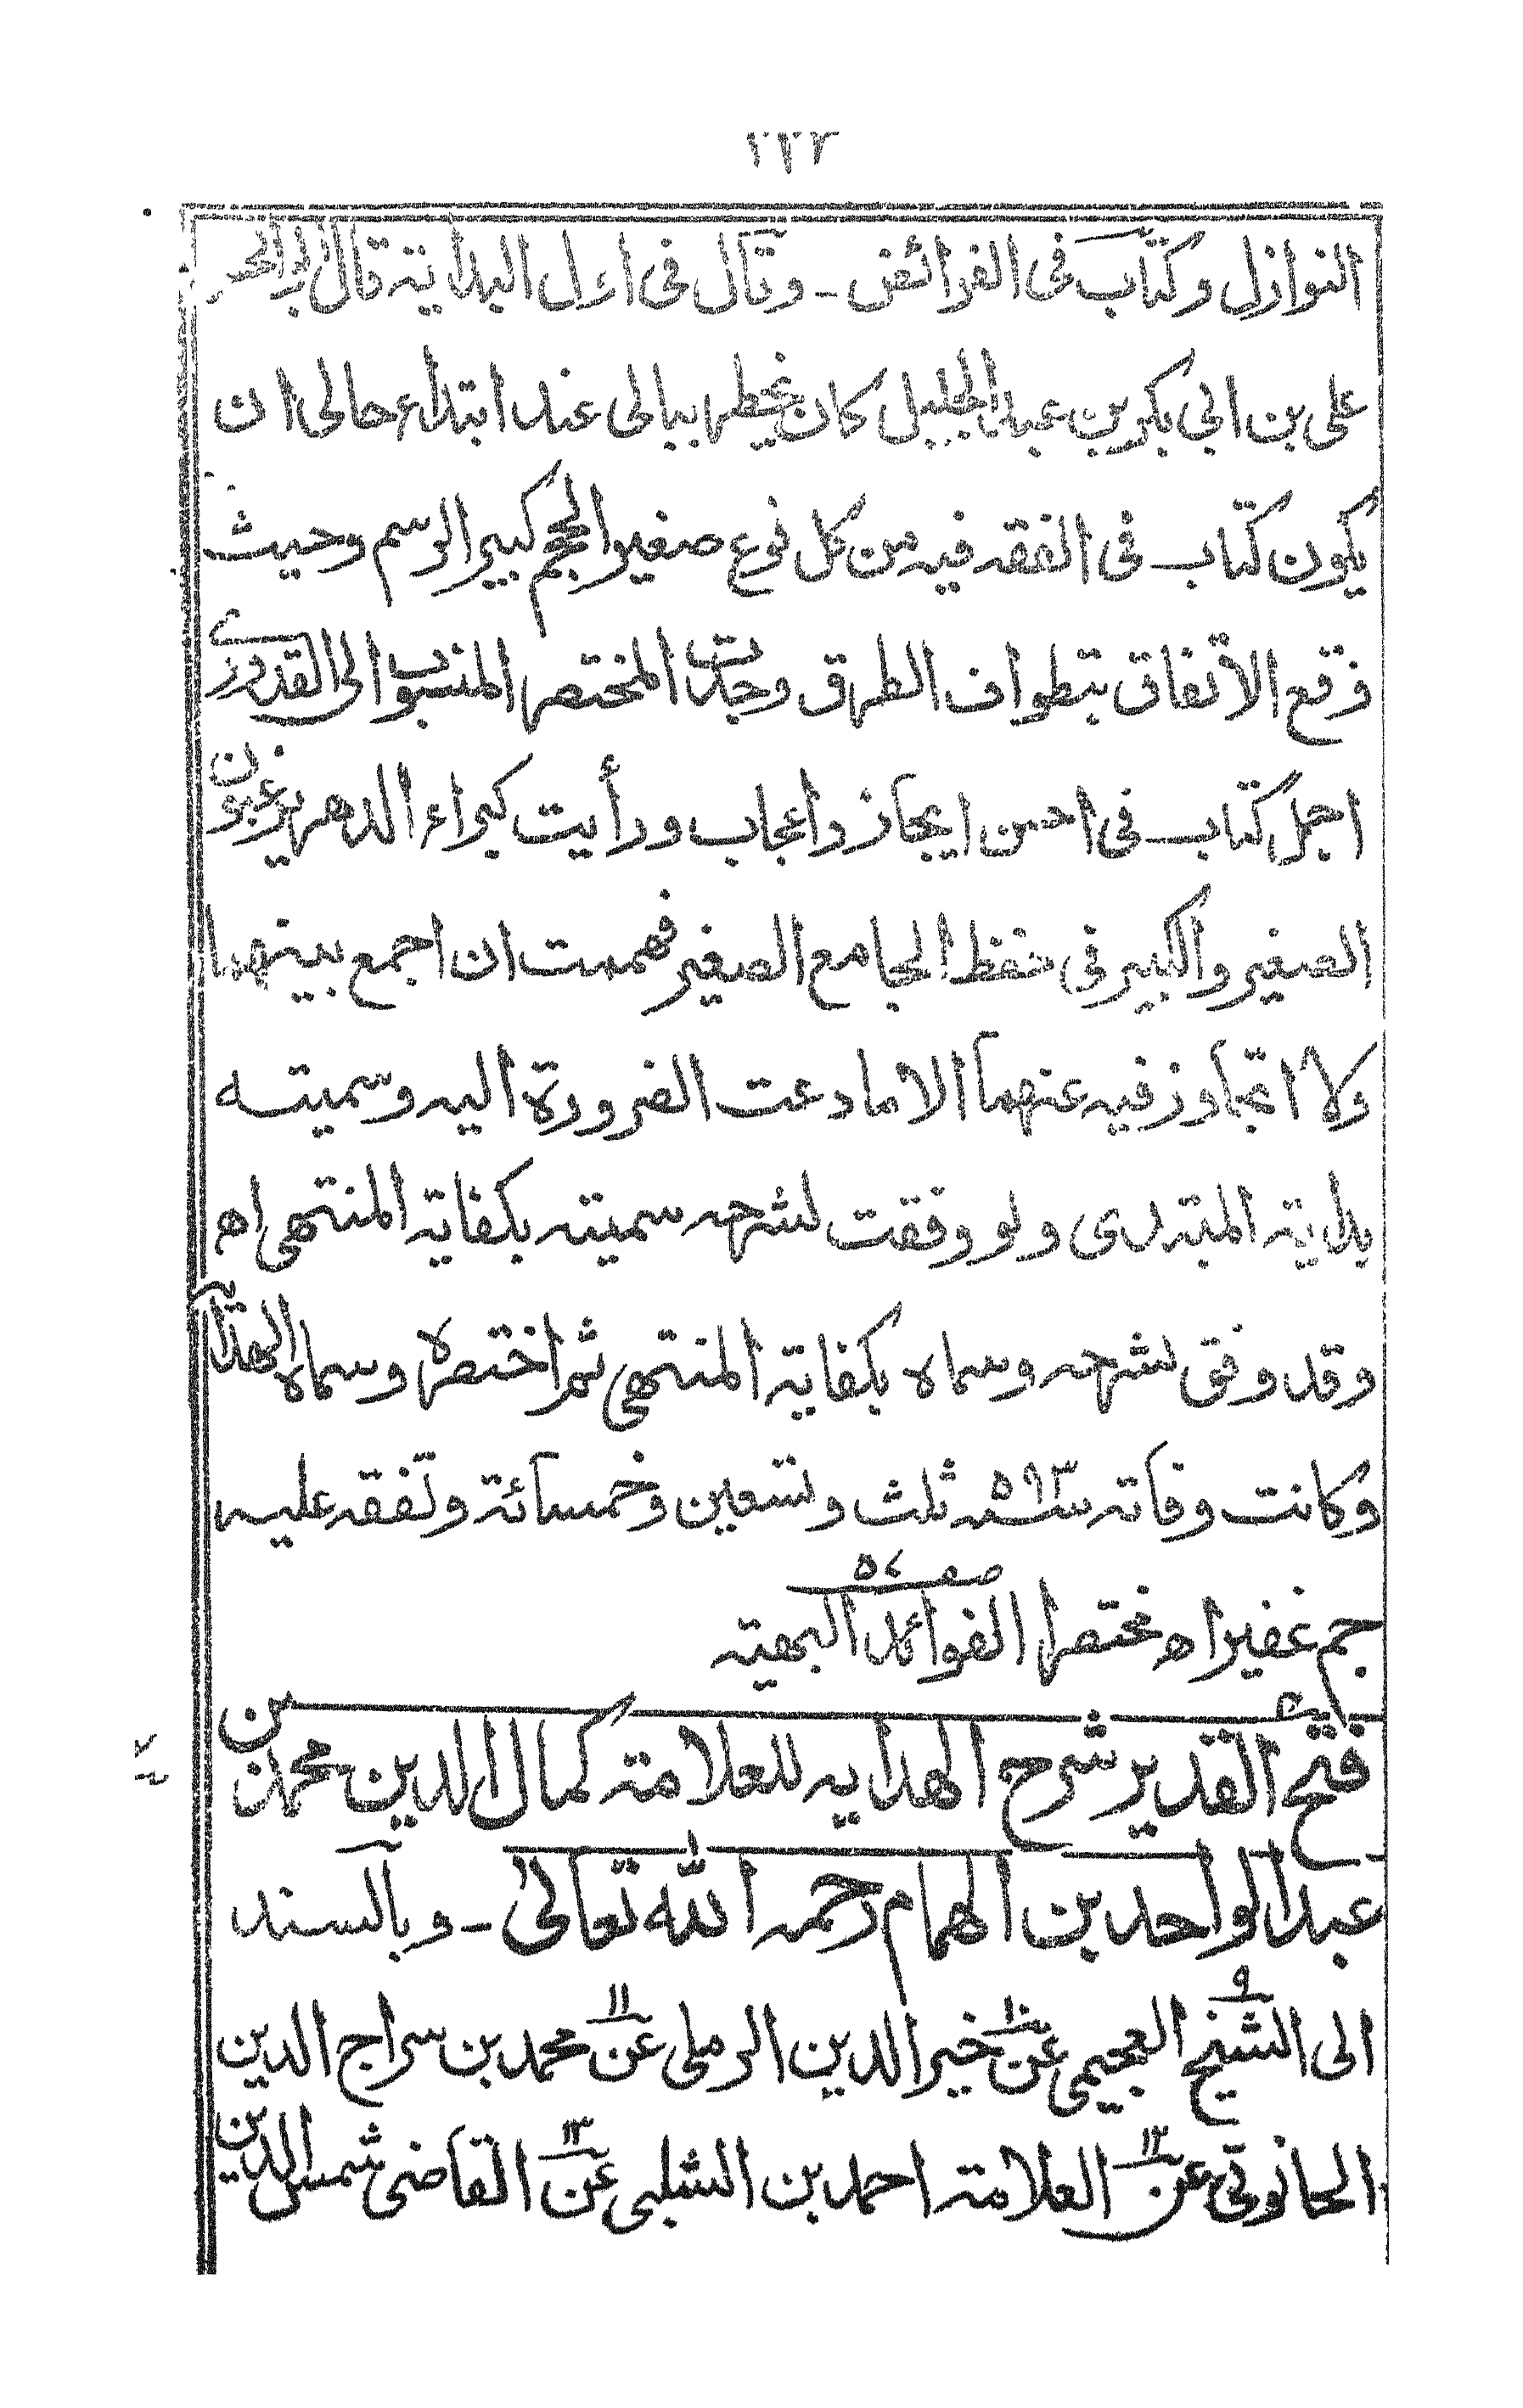 ٢٢٢
النوازل وكتاب فى الفرائض - وقال فى اول البداية قال ابو الحسن
على بن ابى بكر بن عبد الجليل كان يخطر ببالى عند ابتداء حالى ان
يكون كتاب فى الفقه فيه من كل نوع صغير الحجم كبير الرسم وحيث
وقع الاتفاق بتطواف الطرق وجدت المختصر المنسوب الى القدورى
اجمل كتاب فى احسن ايجاز واعجاب ورأيت كبراء الدهر يرغبون
الصغير والكبير فى حفظ الجامع الصغير فهممت ان اجمع بينهما
ولا اتجاوز فيه عنهما الا ما دعت الضرورة اليه وسميته
بداية المبتدى ولو وفقت لشرحه سميته بكفاية المنتهى اه
وقد وفق لشرحه وسماه بكفاية المنتهى ثم اختصره وسماه الهداية
وكانت وفاته سنة ٥٩٣ ثلث وتسعين وخمسمائة وتفقه عليه
جم غفير اه مختصرا الفوائد البهية صـ٥٧
فتح القدير شرح الهدايه للعلامة كمال الدين محمد بن
عبد الواحد بن الهمام رحمه الله تعالى - وبالسند
الى الشيخ العجيمى ٩ عن ١٠ خير الدين الرملى عن ١١ محمد بن سراج الدين
الحانوتى عن ١٢ العلامة احمد بن الشلبى عن ١٣ القاضى شمس الدين